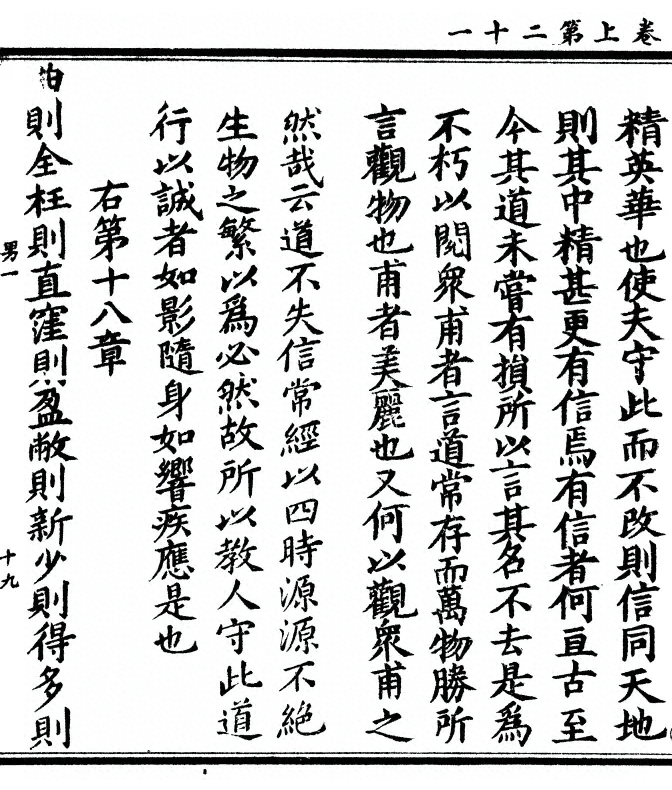 卷上第二十一
精英華也使夫守此而不改則信同天地
則其中精甚更有信焉有信者何亘古至
今其道未嘗有損所以言其名不去是爲
不朽以閱衆甫者言道常存而萬物勝所
言觀物也甫者美麗也又何以觀衆甫之
然哉云道不失信常經以四時源源不絕
生物之繁以爲必然故所以教人守此道
行以誠者如影隨身如響疾應是也
右第十八章
男一
十九
則全枉則直窪則盈敝則新少則得多則